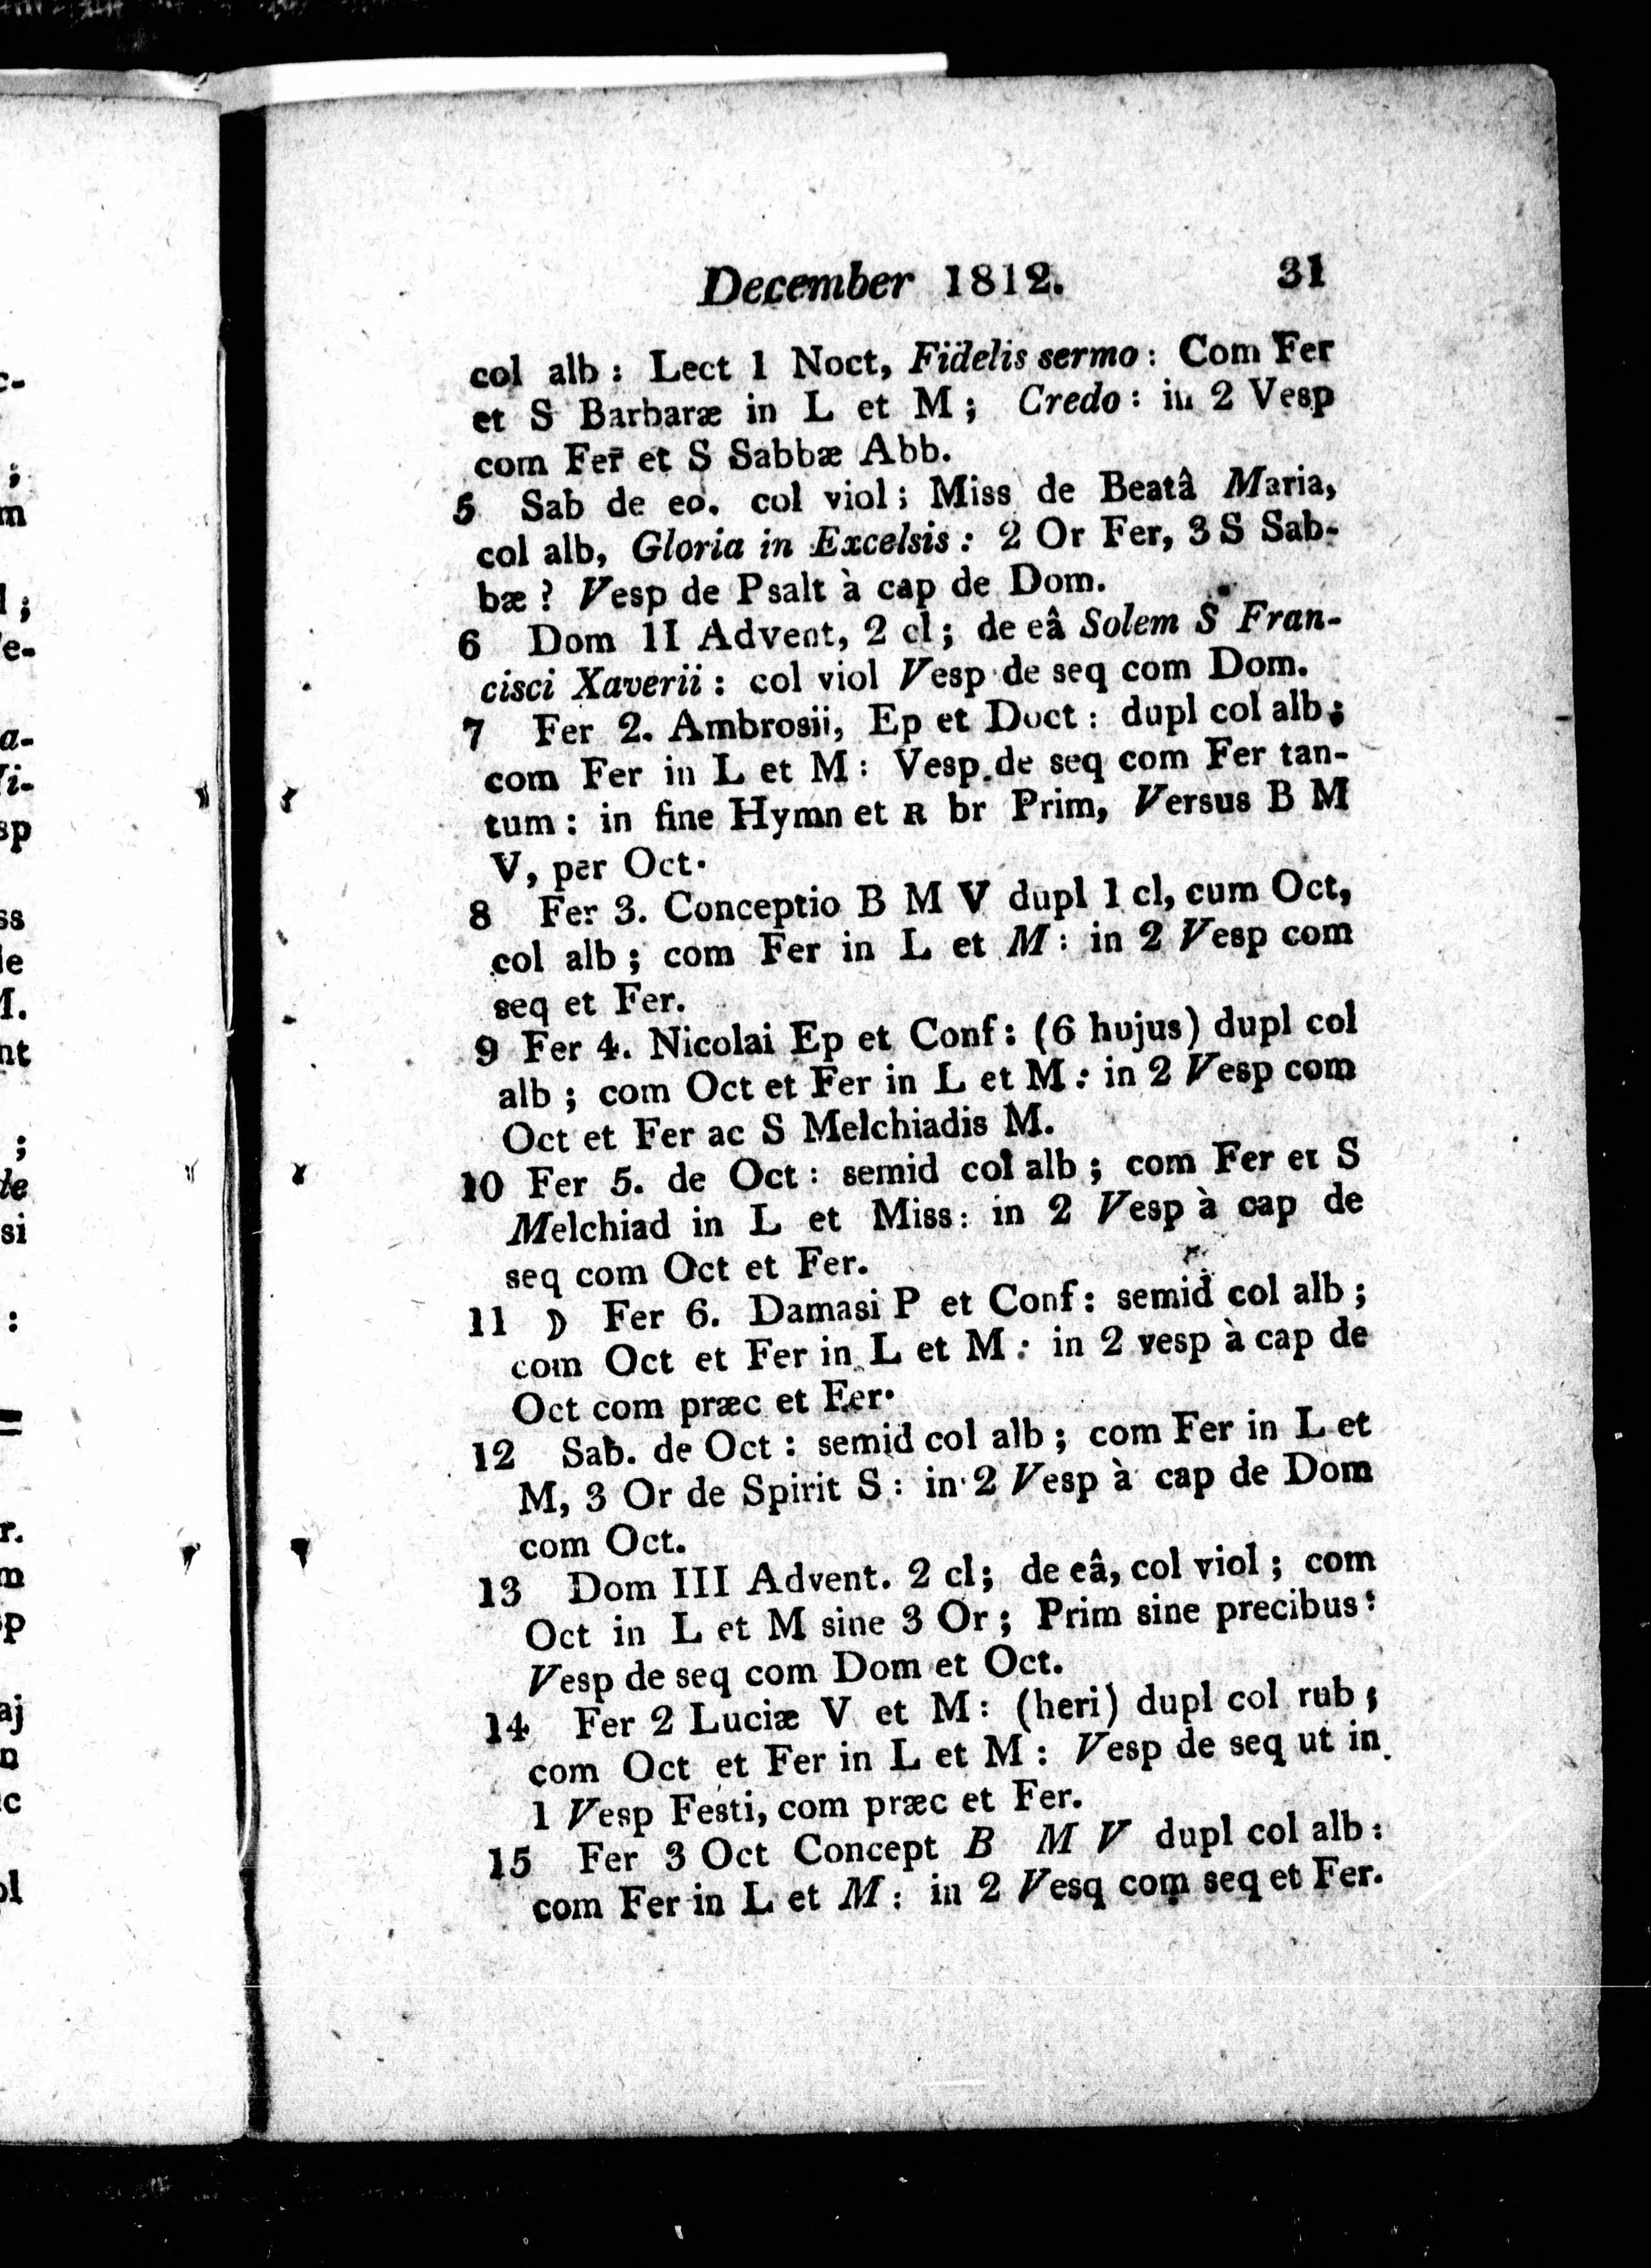 December 1812. 31
col alb : Lect 1 Noct, Fidelis sermo : Com Fer
et S Barbaræ in L et M ; Credo : in 2 Vesp
com Fer et S Sabbæ Abb.
5 Sab de eo. col viol ; Miss de Beatâ Maria,
col alb, Gloria in Excelsis : 2 Or Fer, 3 S Sab-
bæ ? Vesp de Psalt à cap de Dom.
6 Dom II Advent, 2 cl ; de eâ Solem S Fran-
cisci Xaverii : col viol Vesp de seq com Dom.
7 Fer 2. Ambrosii, Ep et Doct : dupl col alb ;
com Fer in L et M : Vesp de seq com Fer tan-
tum : in fine Hymn et R br Prim, Versus B M
V, per Oct.
8 Fer 3. Conceptio B M V dupl 1 cl, cum Oct,
col alb ; com Fer in L et M : in 2 Vesp com
seq et Fer.
9 Fer 4. Nicolai Ep et Conf : (6 hujus) dupl col
alb ; com Oct et Fer in L et M : in 2 Vesp com
Oct et Fer ac S Melchiadis M.
10 Fer 5. de Oct : semid col alb ; com Fer et S
Melchiad in L et Miss : in 2 Vesp à cap de
seq com Oct et Fer.
11 ☽ Fer 6. Damasi P et Conf : semid col alb ;
com Oct et Fer in L et M : in 2 vesp à cap de
Oct com præc et Fer.
12 Sab. de Oct : semid col alb ; com Fer in L et
M, 3 Or de Spirit S : in 2 Vesp à cap de Dom
com Oct.
13 Dom III Advent. 2 cl ; de eâ, col viol ; com
Oct in L et M sine 3 Or ; Prim sine precibus :
Vesp de seq com Dom et Oct.
14 Fer 2 Luciæ V et M : (heri) dupl col rub ;
com Oct et Fer in L et M : Vesp de seq ut in
1 Vesp Festi, com præc et Fer.
15 Fer 3 Oct Concept B M V dupl col alb :
com Fer in L et M : in 2 Vesq com seq et Fer.